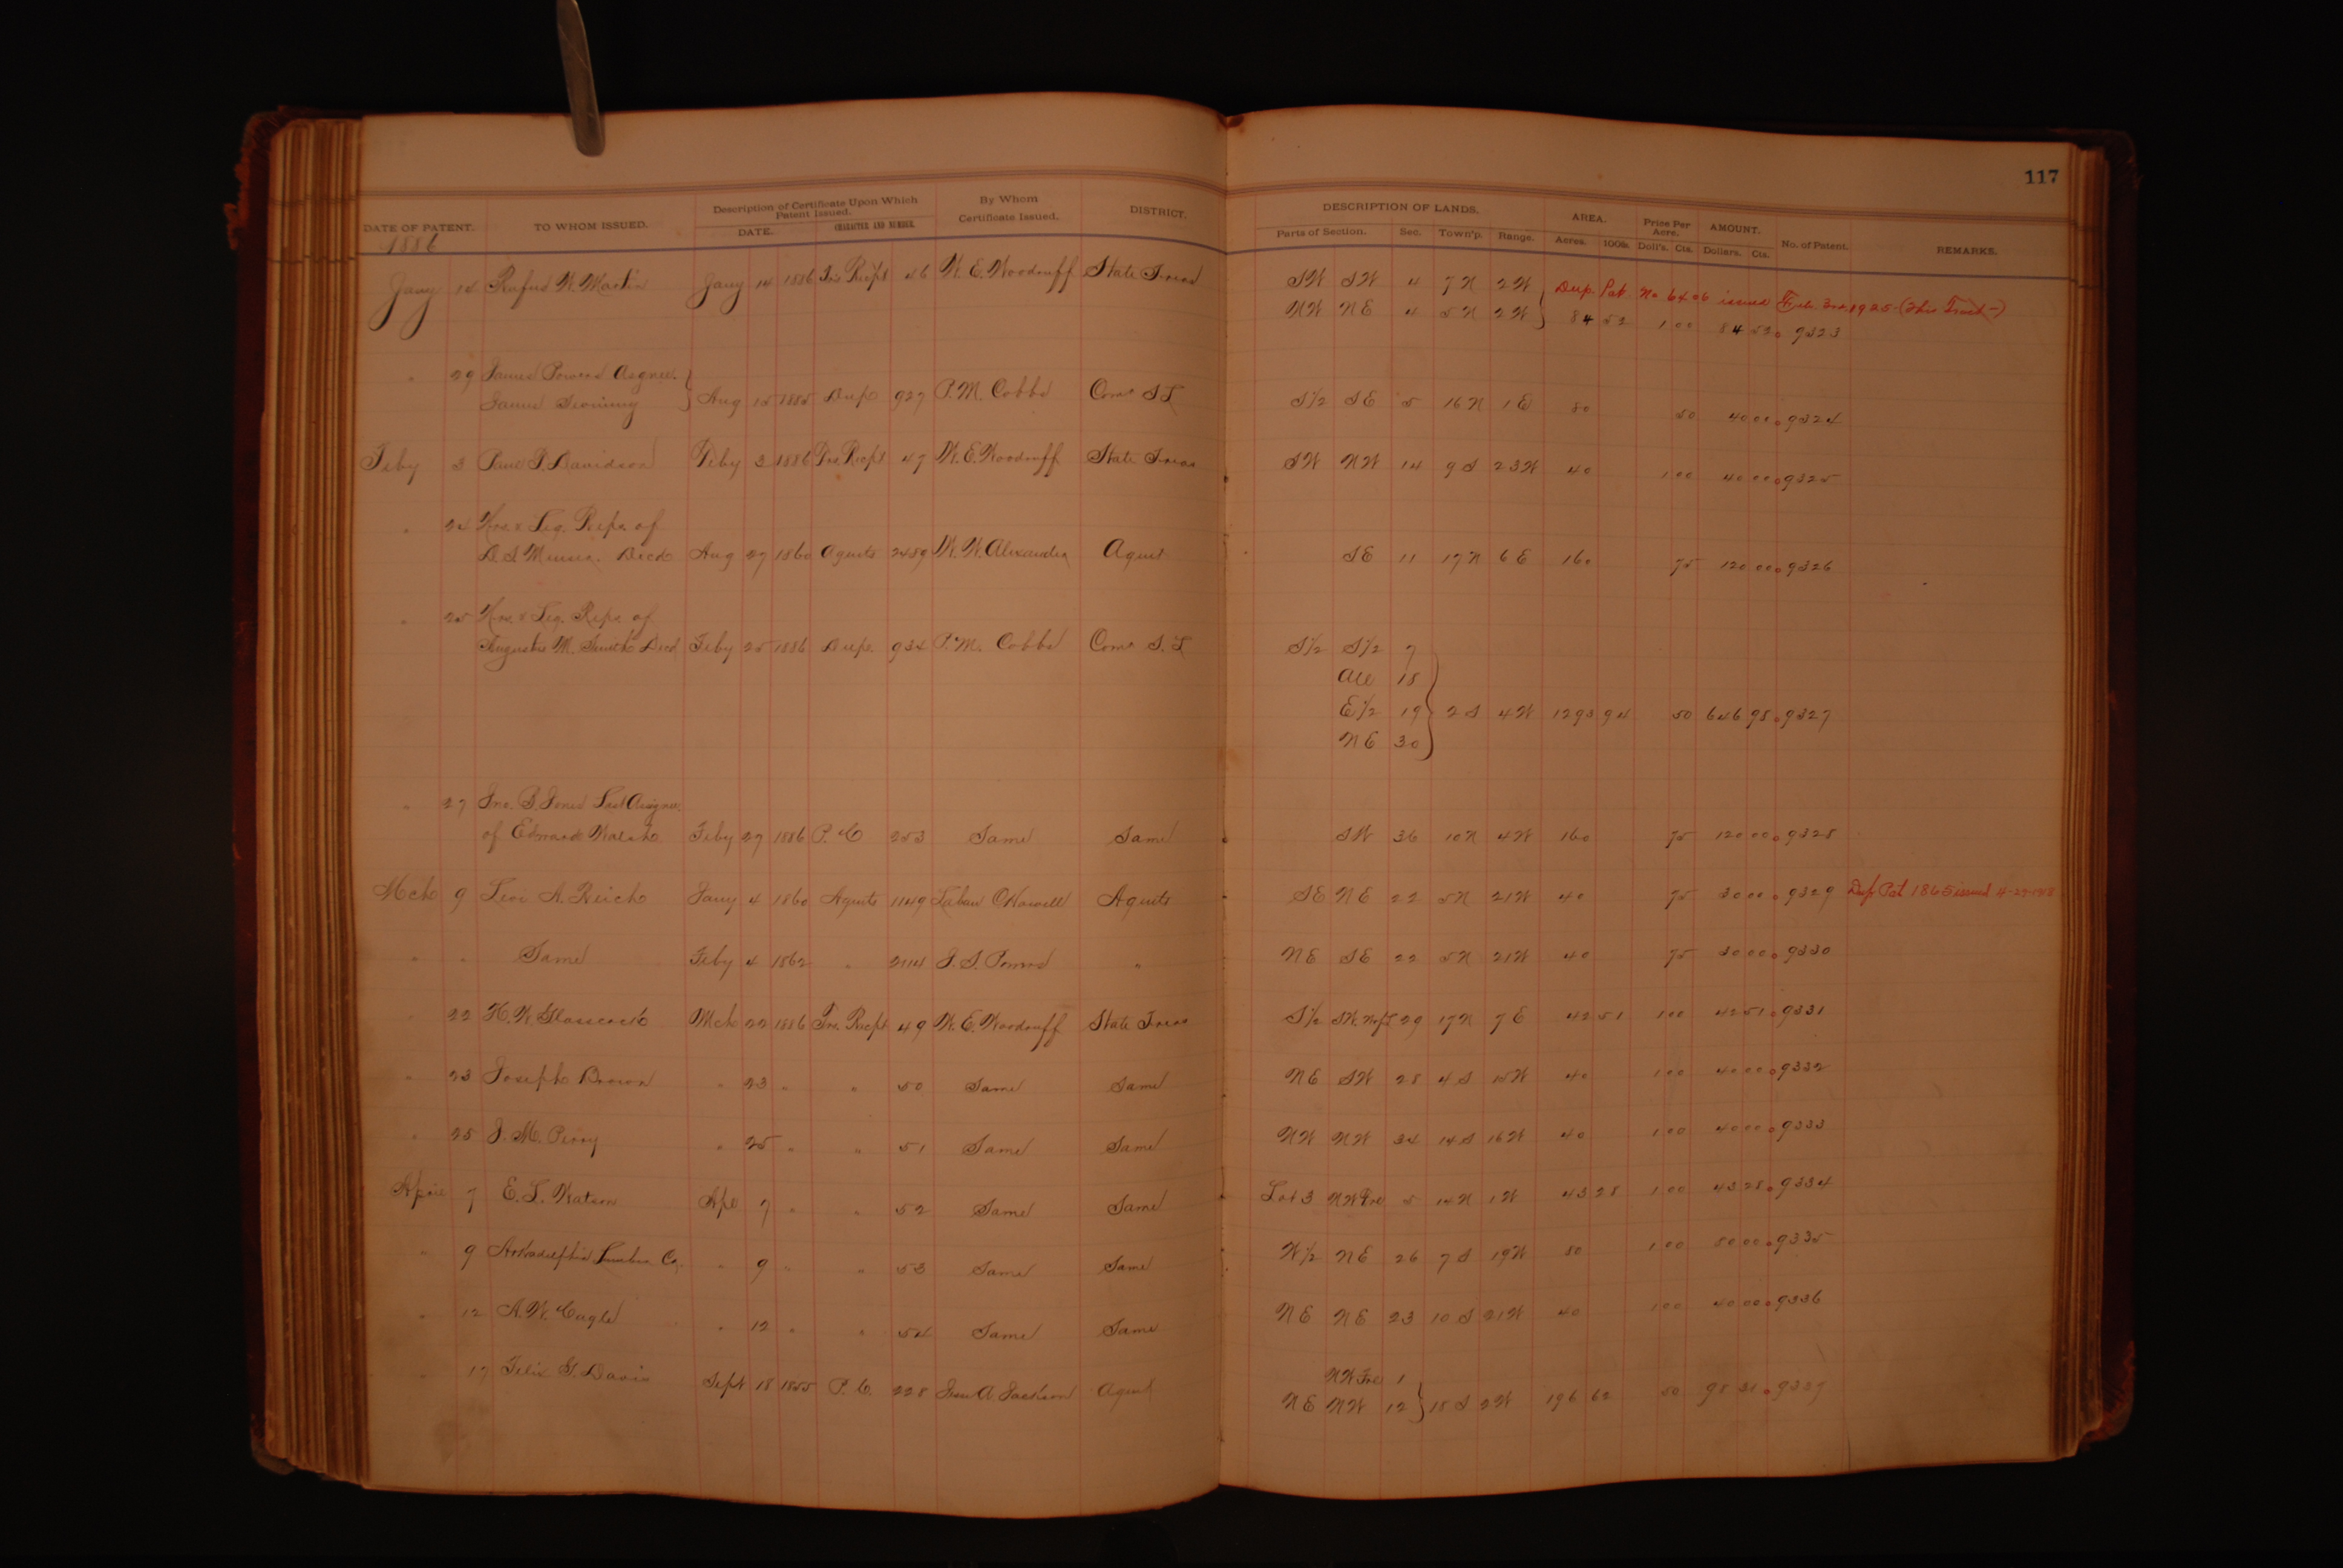 117
DATE OF PATENT. TO WHOM ISSUED. Description of Certificate Upon Which Patent Issued. DATE. CHARACTER AND NUMBER. By Whom Certificate Issued. DISTRICT. DESCRIPTION OF LANDS. Parts of Section. Sec. Town'p. Range. AREA. Acres. 100ls. Price Per Acre. Doll's. Cts. AMOUNT. Dollars. Cts. No. of Patent. REMARKS.
1886
Jany 14 Rufus W. Martin Jany 14 1886 Trs Recpt 46 W. E. Woodruff State Treas SW SW 4 7N 2W Dup. Pat. No 6406 issued Feb. 3rd 1925-(This Tract-)
NW NE 4 5N 2W 84 52 1 00 84 52 9323
" 29 James Powers Asgnee.
James Aug 15 1885 Dup 927 P. M. Cobbs Comr S L S1/2 SE 5 16N 1E 80 50 40 00 9324
Feby 3 Paul P. Davidson Feby 3 1886 Trs Recpt 47 W. E. Woodruff State Treas SW NW 14 9S 23W 40 1 00 40 00 9325
" 24 Hrs. & Leg. Reps. of
D. S. Decd Aug 27 1860 Agents 2489 W. W. Alexander Agent SE 11 17N 6E 160 75 120 00 9326
" 25 Hrs. & Leg. Reps. of
Augustus M. Smith Decd Feby 25 1886 Dup. 934 P. M. Cobbs Comr S. L S1/2 S1/2 7
All 18
E1/2 19 2S 4W 1293 94 50 646 98 9327
NE 30
" 27 Jno. B. Jones Last Assignee
of Edward Walsh Feby 27 1886 P. C 253 Same Same SW 36 10N 4W 160 75 120 00 9328
Mch 9 Levi A. Reich Jany 4 1860 Agents 1149 Laban C Howell Agents SE NE 22 5N 21W 40 75 30 00 9329 Dup Pat 1865 issued 4-29-1918
" " Same Feby 4 1862 " 2114 J. S. " NE SE 22 5N 21W 40 75 30 00 9330
" 22 H. W. Glasscock Mch 22 1886 Trs. Recpt 49 W. E. Woodruff State Treas S1/2 SW 29 17N 7E 42 51 1 00 42 51 9331
" 23 Joseph Brown " 23 " " 50 Same Same NE SW 28 4S 15W 40 1 00 40 00 9332
" 25 J. M. Perry " 25 " " 51 Same Same NW NW 34 14S 16W 40 1 00 40 00 9333
April 7 E. L. Watson Apl 7 " " 52 Same Same Lot 3 NW Frl 5 14N 1W 43 28 1 00 43 28 9334
" 9 Arkadelphia Lumber Co. " 9 " " 53 Same Same W1/2 NE 26 7S 19W 80 1 00 80 00 9335
" 12 A. W. Cagle " 12 " " 54 Same Same NE NE 23 10S 21W 40 1 00 40 00 9336
" 17 Felix G. Davis Sept 18 1855 P. C. 228 Jesse A Jackson Agent NW Frl 1
NE NW 12 18S 2W 196 62 50 98 31 9337